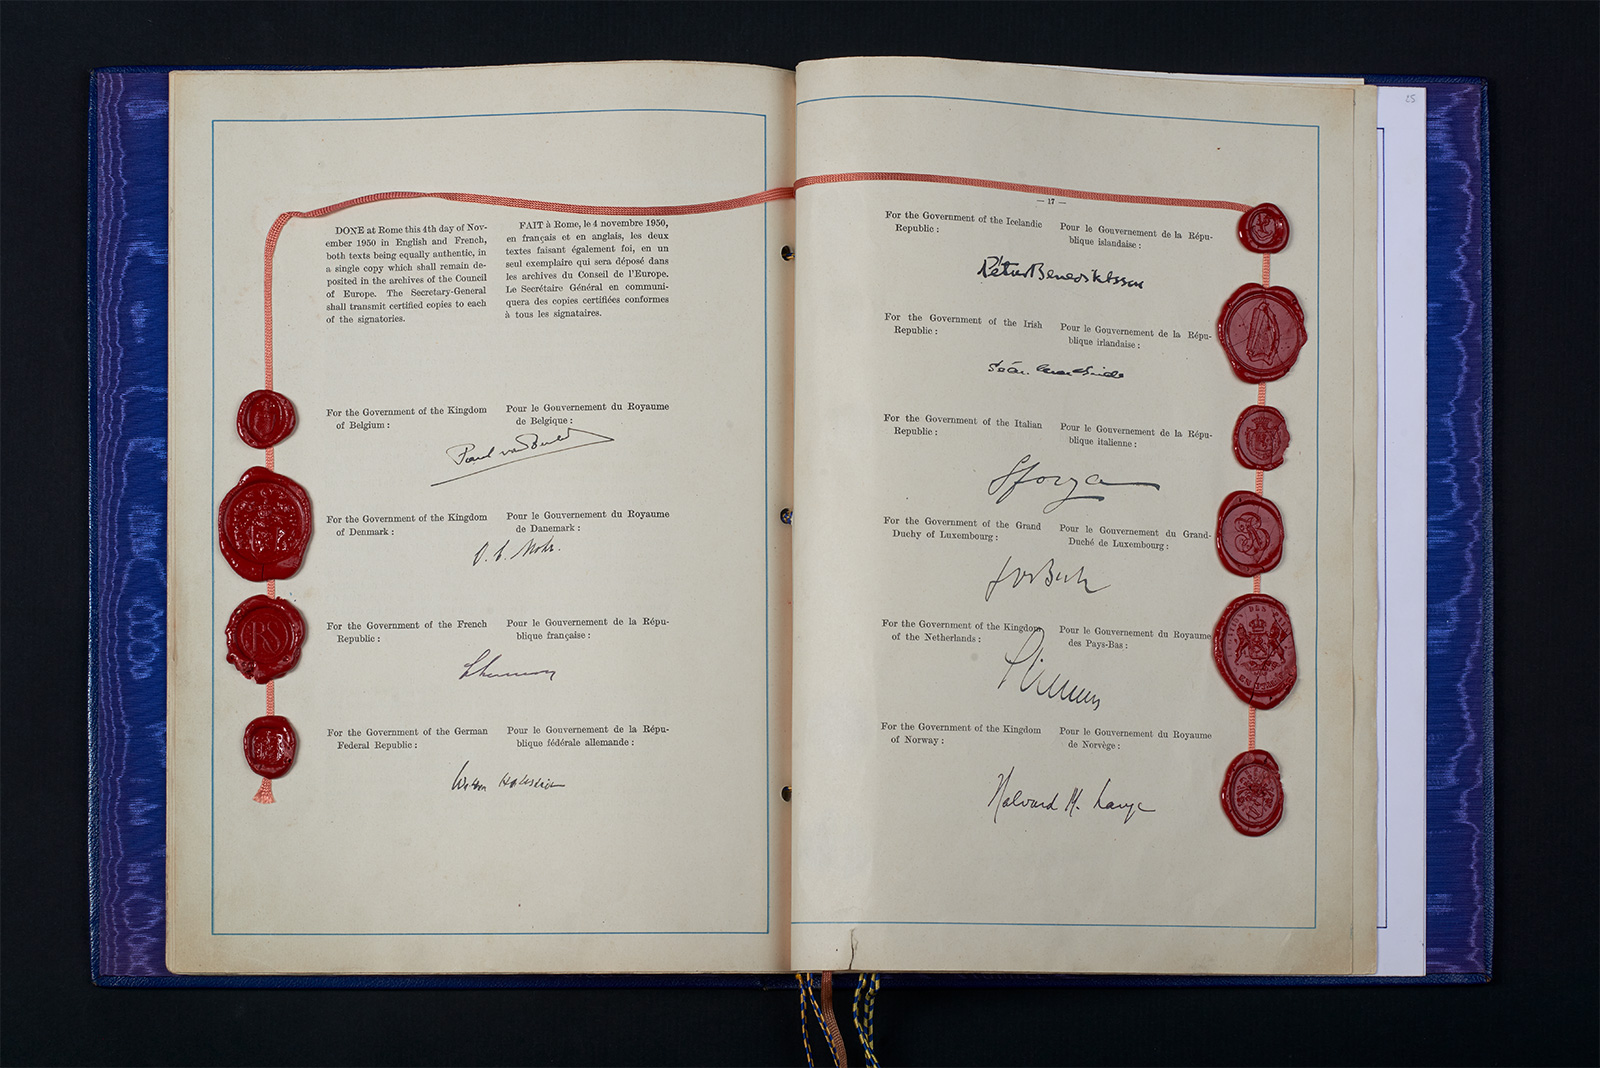 DONE at Rome this 4th day of Nov-
ember 1950 in English and French,
both texts being equally authentic, in
a single copy which shall remain de-
posited in the archives of the Council
of Europe. The Secretary-General
shall transmit certified copies to each
of the signatories.
FAIT à Rome, le 4 novembre 1950,
en français et en anglais, les deux
textes faisant également foi, en un
seul exemplaire qui sera déposé dans
les archives du Conseil de l'Europe.
Le Secrétaire Général en communi-
quera des copies certifiées conformes
à tous les signataires.
For the Government of the Kingdom
of Belgium :
Pour le Gouvernement du Royaume
de Belgique :
Paul van Zeeland
For the Government of the Kingdom
of Denmark :
Pour le Gouvernement du Royaume
de Danemark :
For the Government of the French
Republic :
Pour le Gouvernement de la Répu-
blique française :
RS
For the Government of the German
Federal Republic :
Pour le Gouvernement de la Répu-
blique fédérale allemande :
25
— 17 —
For the Government of the Icelandic
Republic :
Pour le Gouvernement de la Répu-
blique islandaise :
Pétur Benediktsson
For the Government of the Irish
Republic :
Pour le Gouvernement de la Répu-
blique irlandaise :
For the Government of the Italian
Republic :
Pour le Gouvernement de la Répu-
blique italienne :
Sforza
For the Government of the Grand
Duchy of Luxembourg :
Pour le Gouvernement du Grand-
Duché de Luxembourg :
For the Government of the Kingdom
of the Netherlands :
Pour le Gouvernement du Royaume
des Pays-Bas :
For the Government of the Kingdom
of Norway :
Pour le Gouvernement du Royaume
de Norvège :
Halvard M. Lange